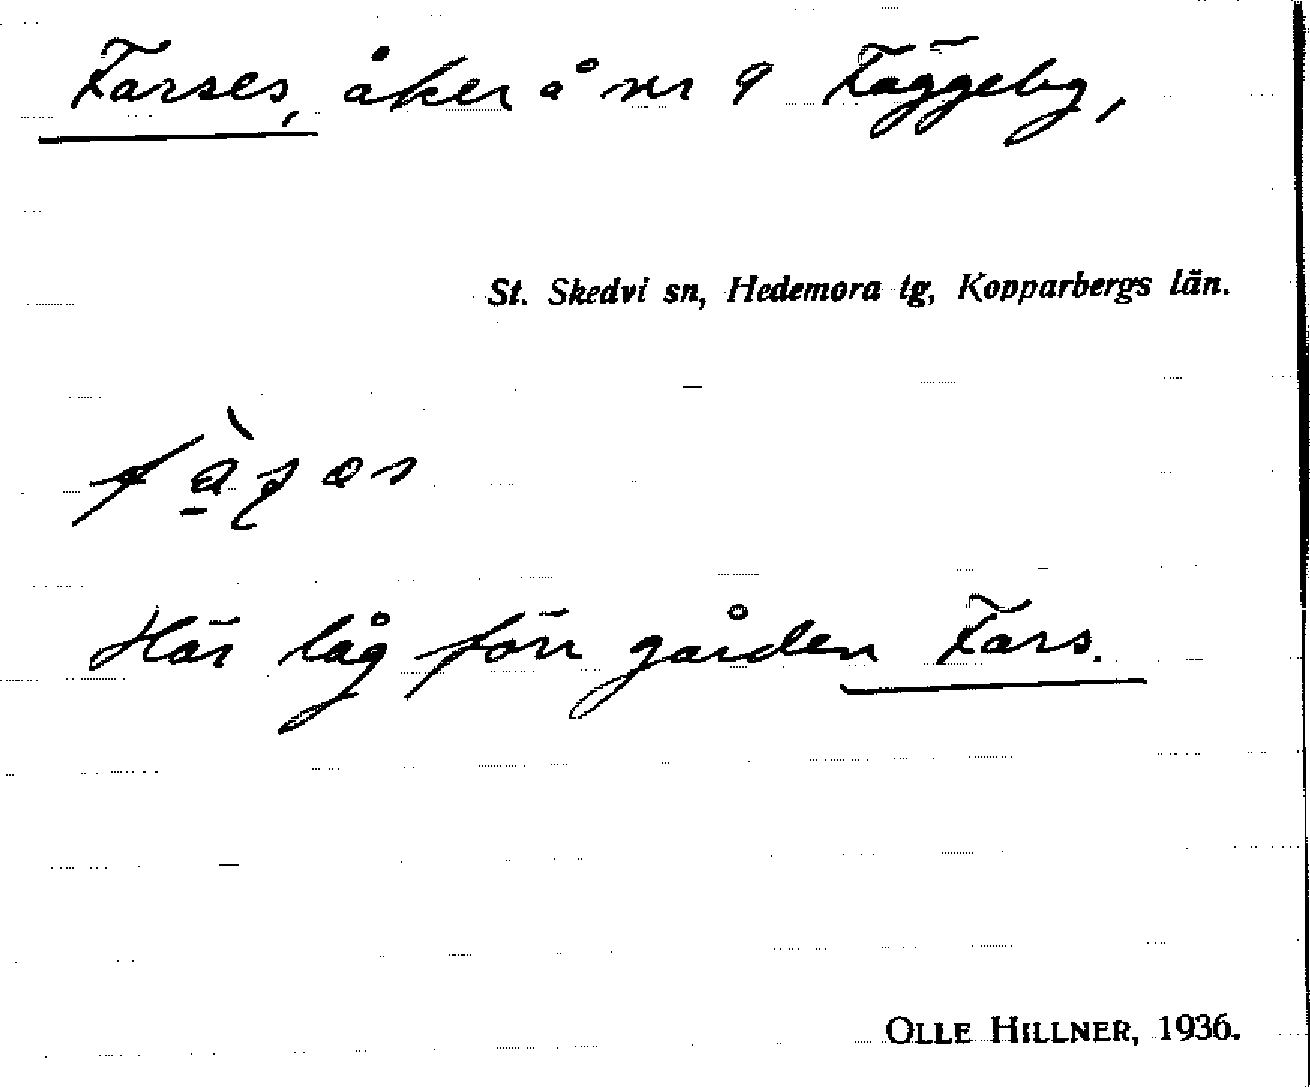 Farses, åker å nr 9 Fäggeby,
St. Skedvi sn, Hedemora tg, Kopparbergs län.
Här låg förr gården Fars.
OLLE HILLNER, 1936.